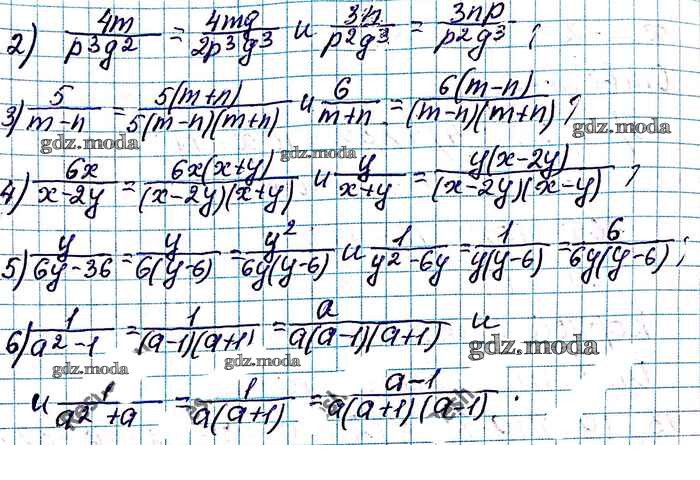 2) 4m/p³g² = 4mg/2p³g³ и 3n/p²g³ = 3np/p²g³ ;
3) 5/m-n = 5(m+n)/5(m-n)(m+n) и 6/m+n = 6(m-n)/(m-n)(m+n) ;
gdz.moda gdz.moda
4) 6x/x-2y = 6x(x+y)/(x-2y)(x+y) и y/x+y = y(x-2y)/(x-2y)(x-y) ;
gdz.moda
5) y/6y-36 = y/6(y-6) = y²/6y(y-6) и 1/y²-6y = 1/y(y-6) = 6/6y(y-6) ;
6) 1/a²-1 = 1/(a-1)(a+1) = a/a(a-1)(a+1) и
gdz.moda gdz.moda gdz.moda
и 1/a²+a = 1/a(a+1) = a-1/a(a+1)(a-1) .